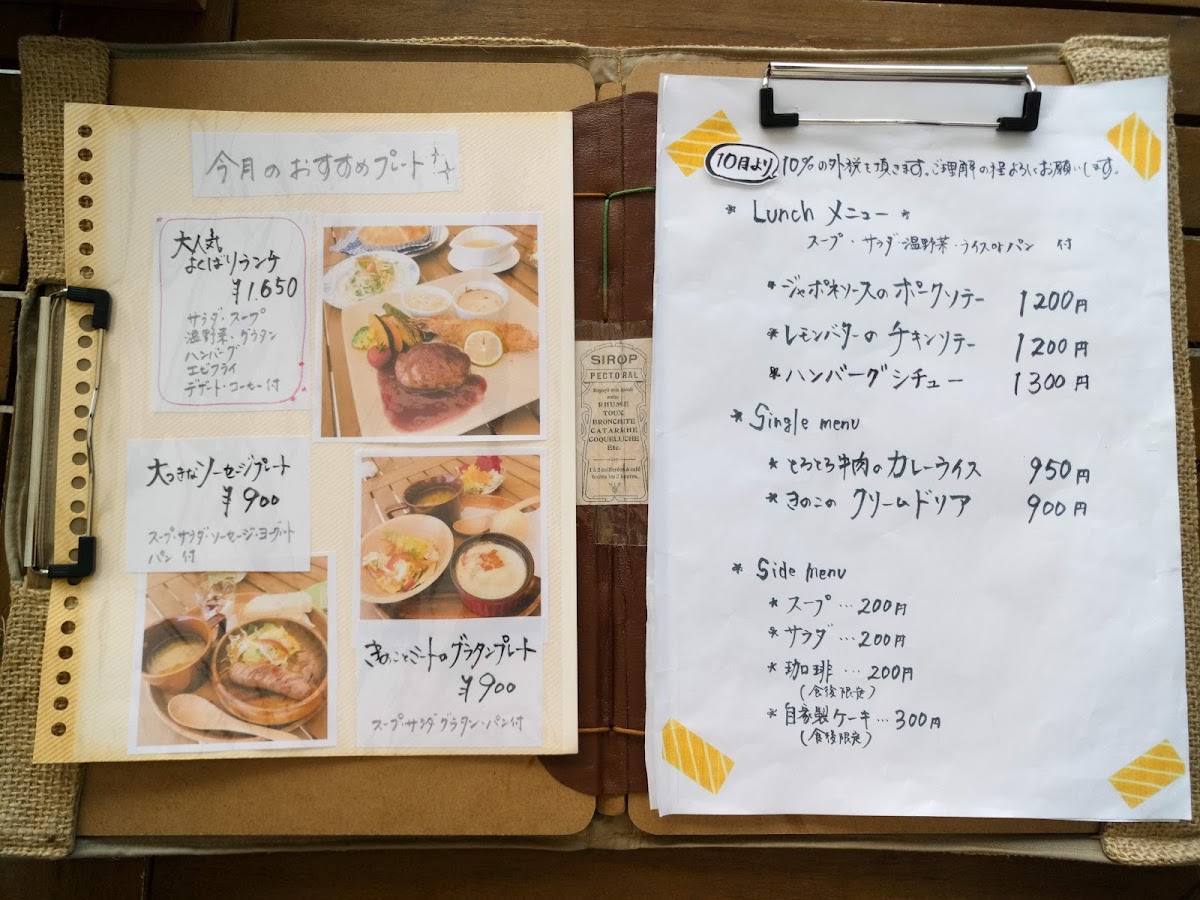 今月のおすすめプレート
大人気
よくばりランチ
¥1.650
サラダ・スープ
温野菜・グラタン
ハンバーグ
エビフライ
デザート・コーヒー付
大っきなソーセージプレート
¥900
スープ・サラダ・ソーセージ・ヨーグルト
パン 付
きのことミートのグラタンプレート
¥900
スープ・サラダ グラタン・パン付
SIROP
PECTORAL
RHUME
TOUX
BRONCHITE
CATARRHE
COQUELUCHE
Etc.
10月より 10%の外税を頂きます。ご理解の程よろしくお願いします。
* Lunch メニュー *
スープ・サラダ・温野菜・ライスorパン 付
* ジャポネソースのポークソテー 1200円
* レモンバターのチキンソテー 1200円
* ハンバーグシチュー 1300円
* Single menu
* とろとろ牛肉のカレーライス 950円
* きのこのクリームドリア 900円
* Side menu
* スープ…200円
* サラダ…200円
* 珈琲…200円
(食後限定)
* 自家製ケーキ…300円
(食後限定)